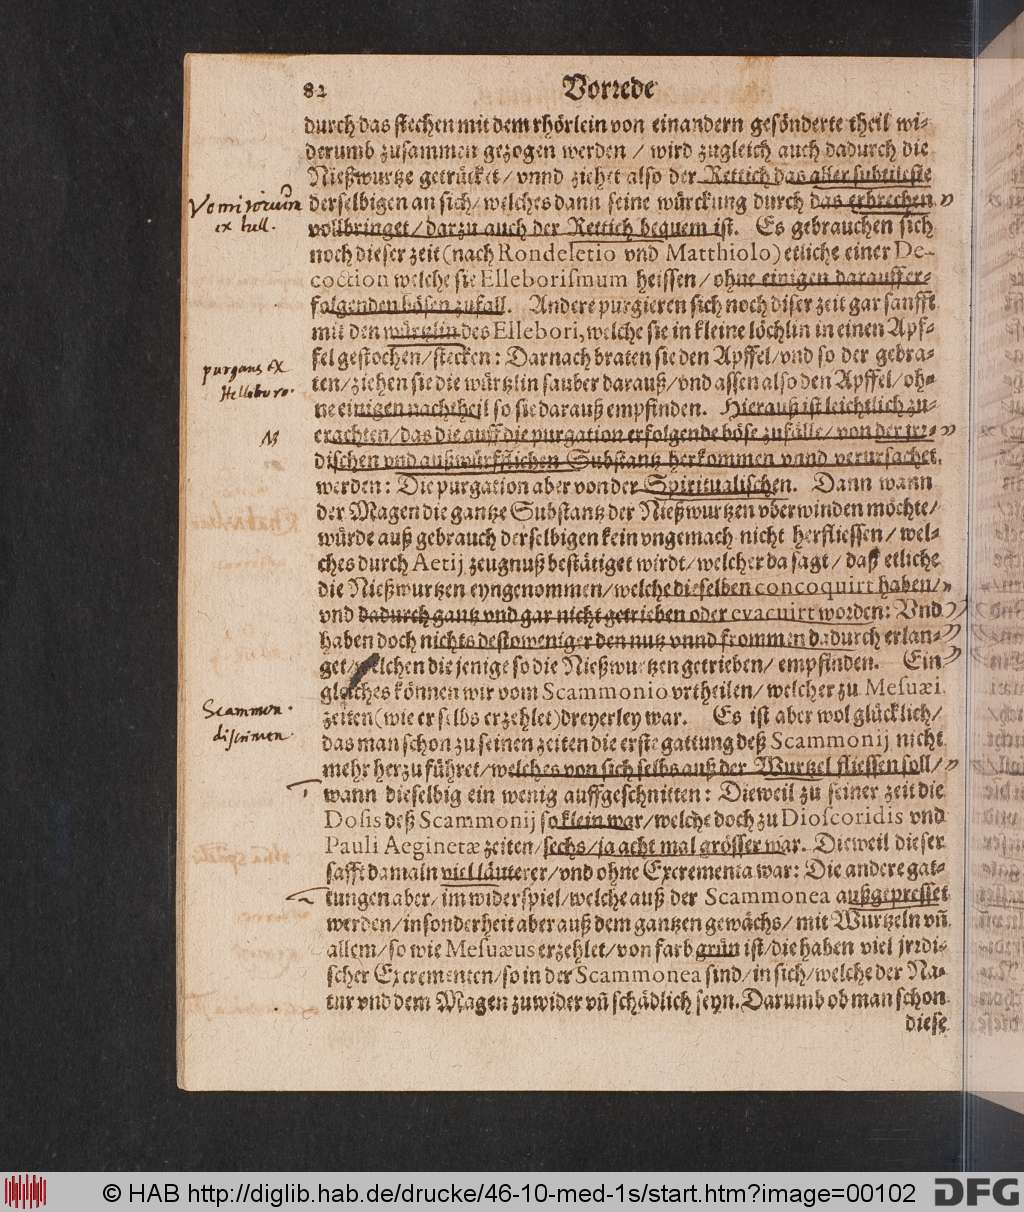 82 Vorrede
durch das stechen mit dem rhörlein von einandern gesönderte theil wi-
derumb zusammen gezogen werden / wird zugleich auch dadurch die
Nießwurtze getrücket / vnnd ziehet also der Rettich das aller subtileste
Vomitorium derselbigen an sich / welches dann seine würckung durch das erbrechen
ex hell. vollbringet / darzu auch der Rettich bequem ist. Es gebrauchen sich
noch dieser zeit (nach Rondeletio vnd Matthiolo) etliche einer De-
coction welche sie Elleborismum heissen / ohne einigen darauff er-
folgenden bösen zufall. Andere purgieren sich noch diser zeit gar sanfft
mit den würtzlin des Ellebori, welche sie in kleine löchlin in einen Apf-
fel gestochen / stecken: Darnach braten sie den Apffel / vnd so der gebra-
purgans ex ten / ziehen sie die würtzlin sauber darauß / vnd assen also den Apffel / oh-
Helleboro. ne einigen nachtheil so sie darauß empfinden. Hierauß ist leichtlich zu-
erachten / das die auff die purgation erfolgende böse zufälle / von der jrr-
dischen vnd außwürfflichen Substantz herkommen vnnd verursachet
werden: Die purgation aber von der Spiritualischen. Dann wann
der Magen die gantze Substantz der Nießwurtzen vberwinden möchte /
würde auß gebrauch derselbigen kein vngemach nicht herfliessen / wel-
ches durch Aetij zeugnuß bestätiget wirdt / welcher da sagt / daß etliche
die Nießwurtzen eyngenommen / welche dieselben concoquirt haben /
vnd dadurch gantz vnd gar nicht getrieben oder evacuirt worden: Vnd
haben doch nichts destoweniger den nutz vnnd frommen dadurch erlan-
get / welchen die jenige so die Nießwurtzen getrieben / empfinden. Ein
gleiches können wir vom Scammonio vrtheilen / welcher zu Mesuæi
Scammon. zeiten (wie er selbs erzehlet) dreyerley war. Es ist aber wol glücklich /
discrimen. das man schon zu seinen zeiten die erste gattung deß Scammonij nicht
mehr herzu führet / welches von sich selbs auß der Wurtzel fliessen soll /
wann dieselbig ein wenig auffgeschnitten: Dieweil zu seiner zeit die
Dosis deß Scammonij so klein war / welche doch zu Dioscoridis vnd
Pauli Aeginetæ zeiten / sechs / ja acht mal grösser war. Dieweil dieser
safft damaln viel läuterer / vnd ohne Excrementa war: Die andere gat-
tungen aber / im widerspiel / welche auß der Scammonea außgepresset
werden / insonderheit aber auß dem gantzen gewächs / mit Wurtzeln vñ
allem / so wie Mesuæus erzehlet / von farb grün ist / die haben viel jrrdi-
scher Excrementen / so in der Scammonea sind / in sich / welche der Na-
tur vnd dem Magen zuwider vñ schädlich seyn. Darumb ob man schon
diese
© HAB http://diglib.hab.de/drucke/46-10-med-1s/start.htm?image=00102 DFG